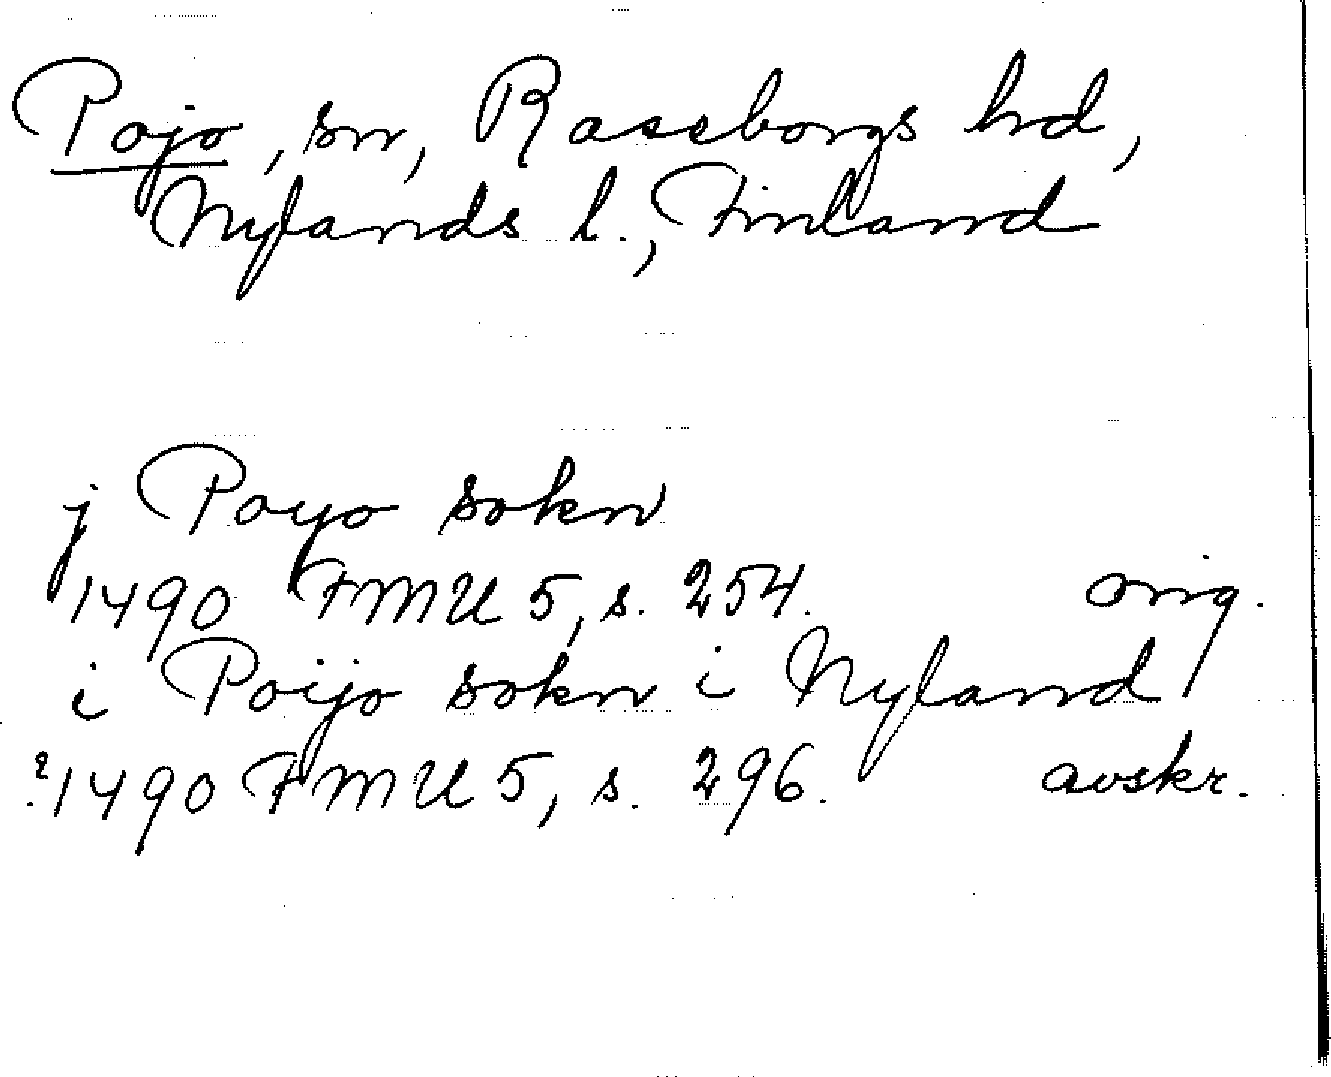 Pojo, sn, Raseborgs hd,
Nylands l., Finland
j Poyo sokn
1490 FMU 5, s. 254. orig.
i Poijo sokn i Nyland
?1490 FMU 5, s. 296. avskr.